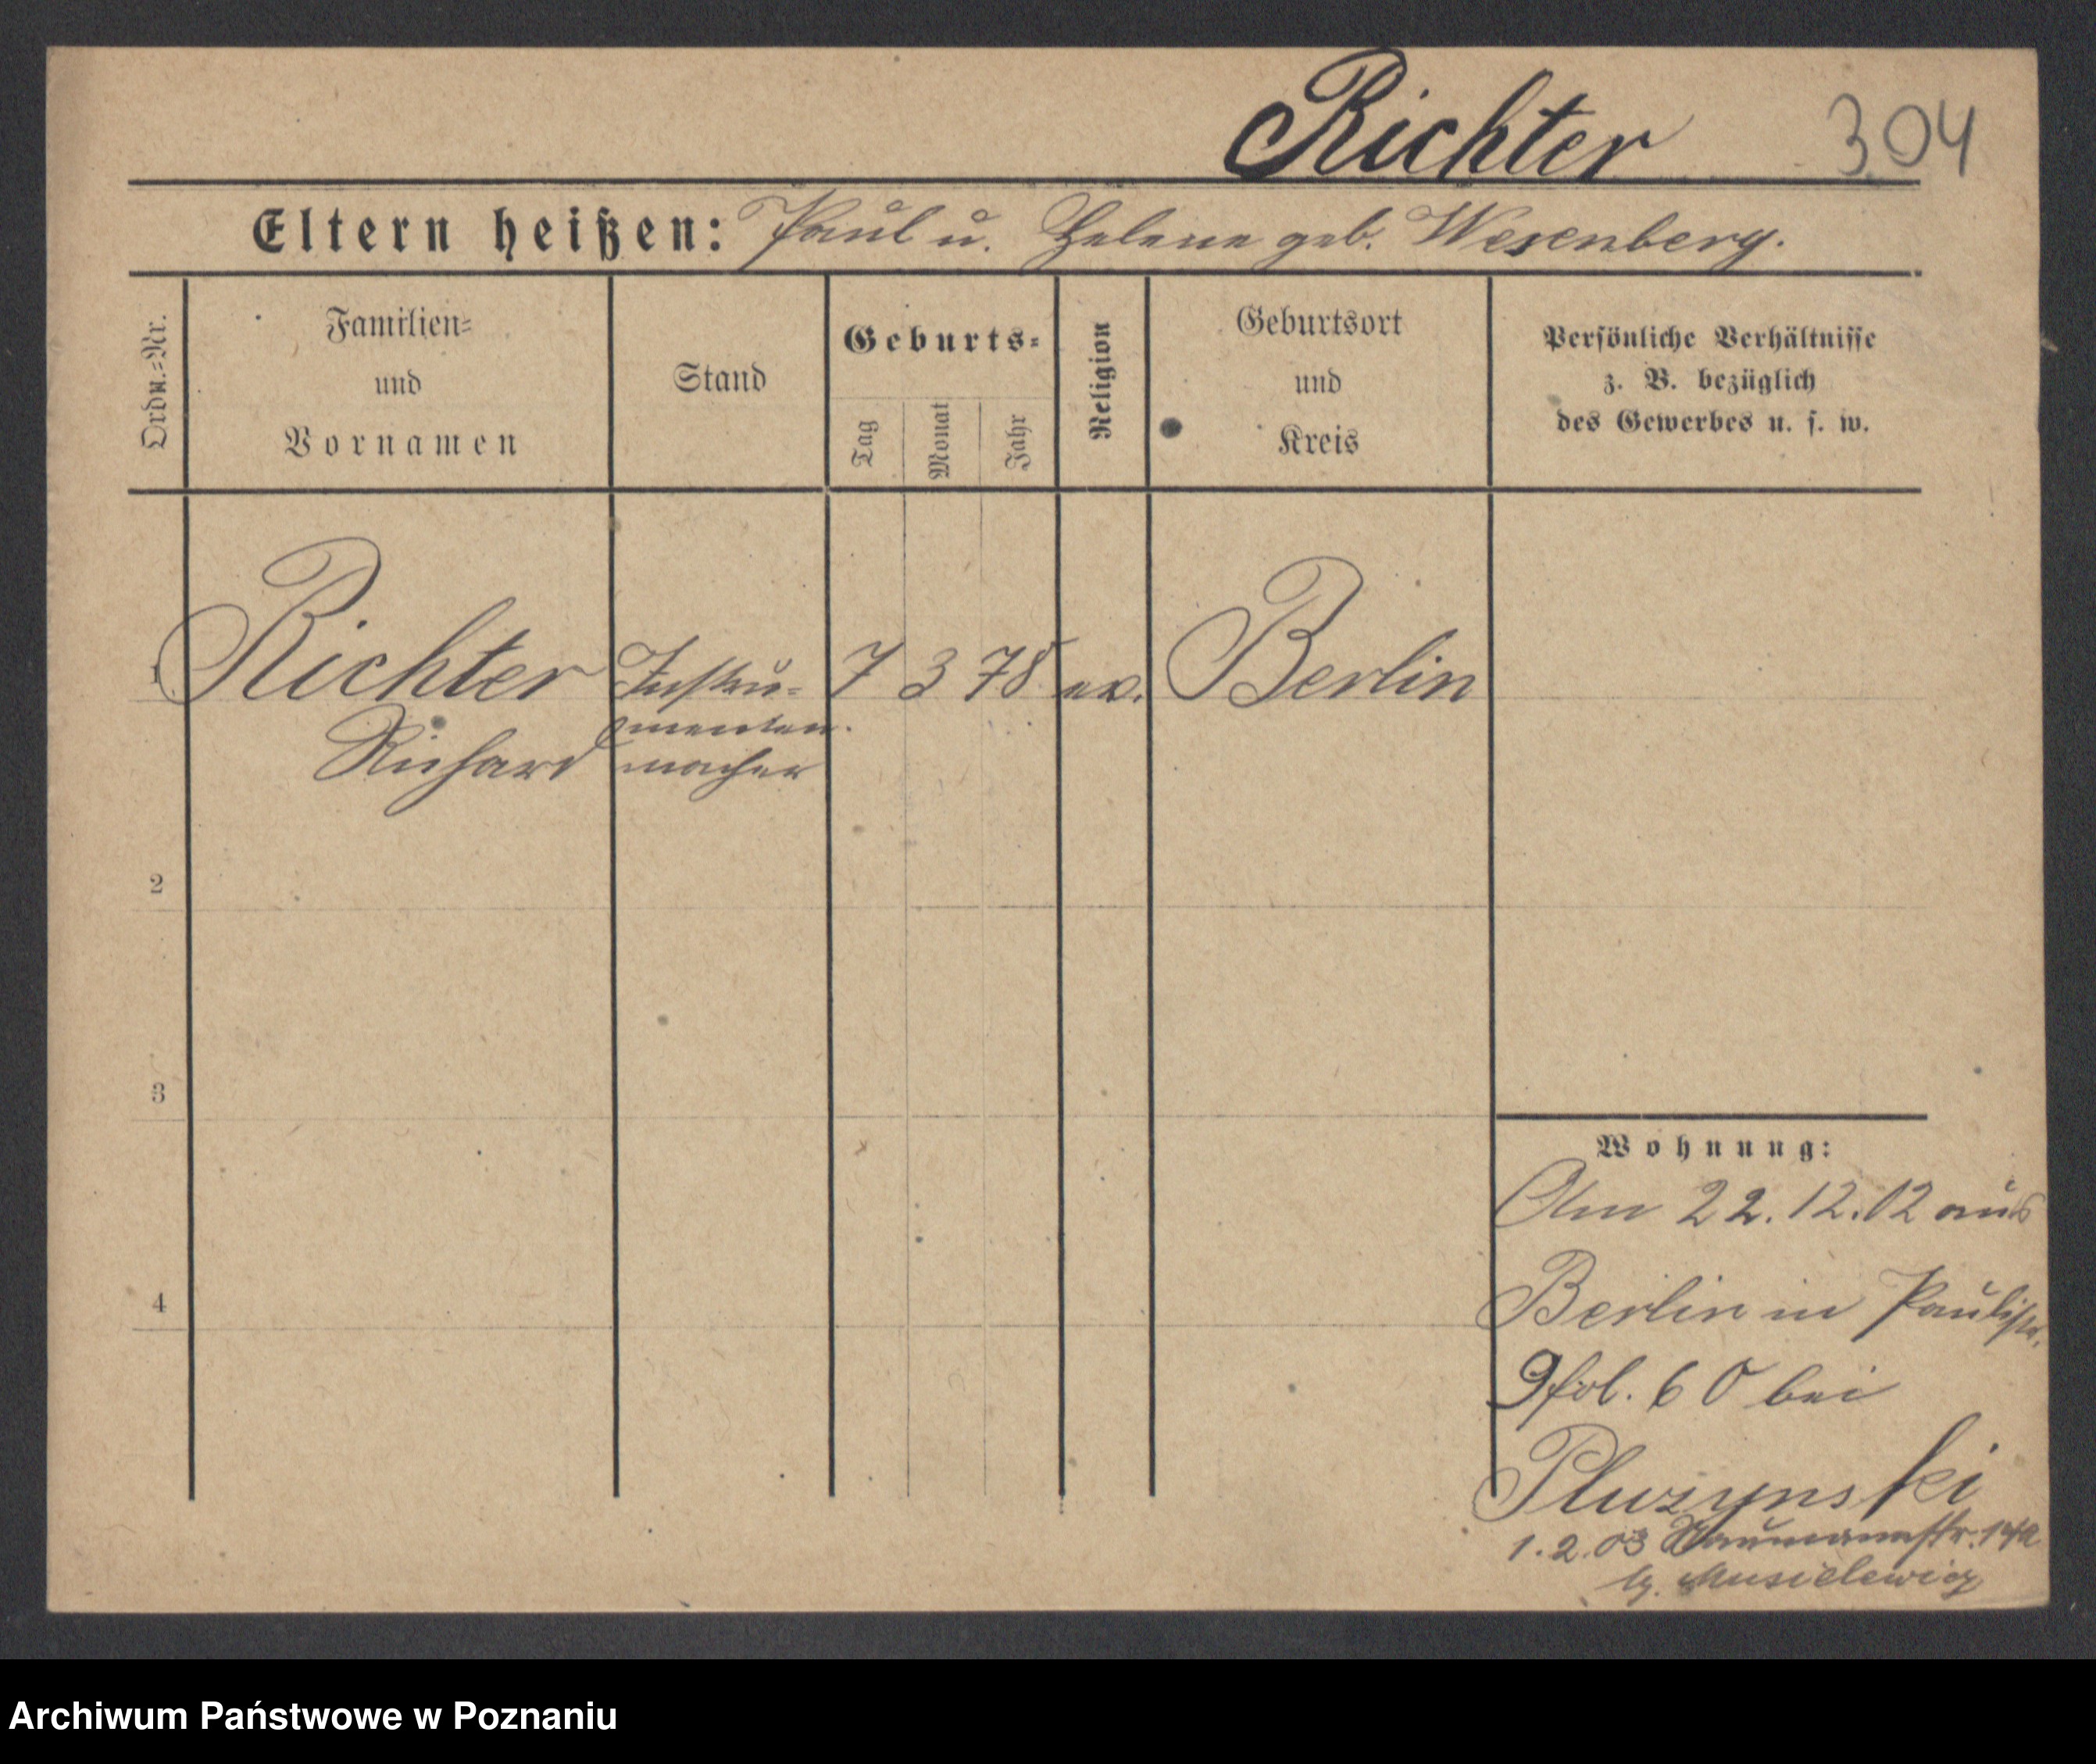 Richter 304
Eltern heißen: Paul u. Helene geb. Wesenberg.
Ordn.=Nr.
Familien=
und
Vornamen
Stand
Geburts=
Tag
Monat
Jahr
Religion
Geburtsort
und
Kreis
Persönliche Verhältnisse
z. B. bezüglich
des Gewerbes u. s. w.
1 Richter Instru= 7 3 78 ev. Berlin
Richard menten
macher
2
3
4
Wohnung:
Am 22.12.02 aus
Berlin in Paulistr.
9 fol. 60 bei
Pluzynski
1.2.03 Naumannstr. 14a
Musielewicz
Archiwum Państwowe w Poznaniu